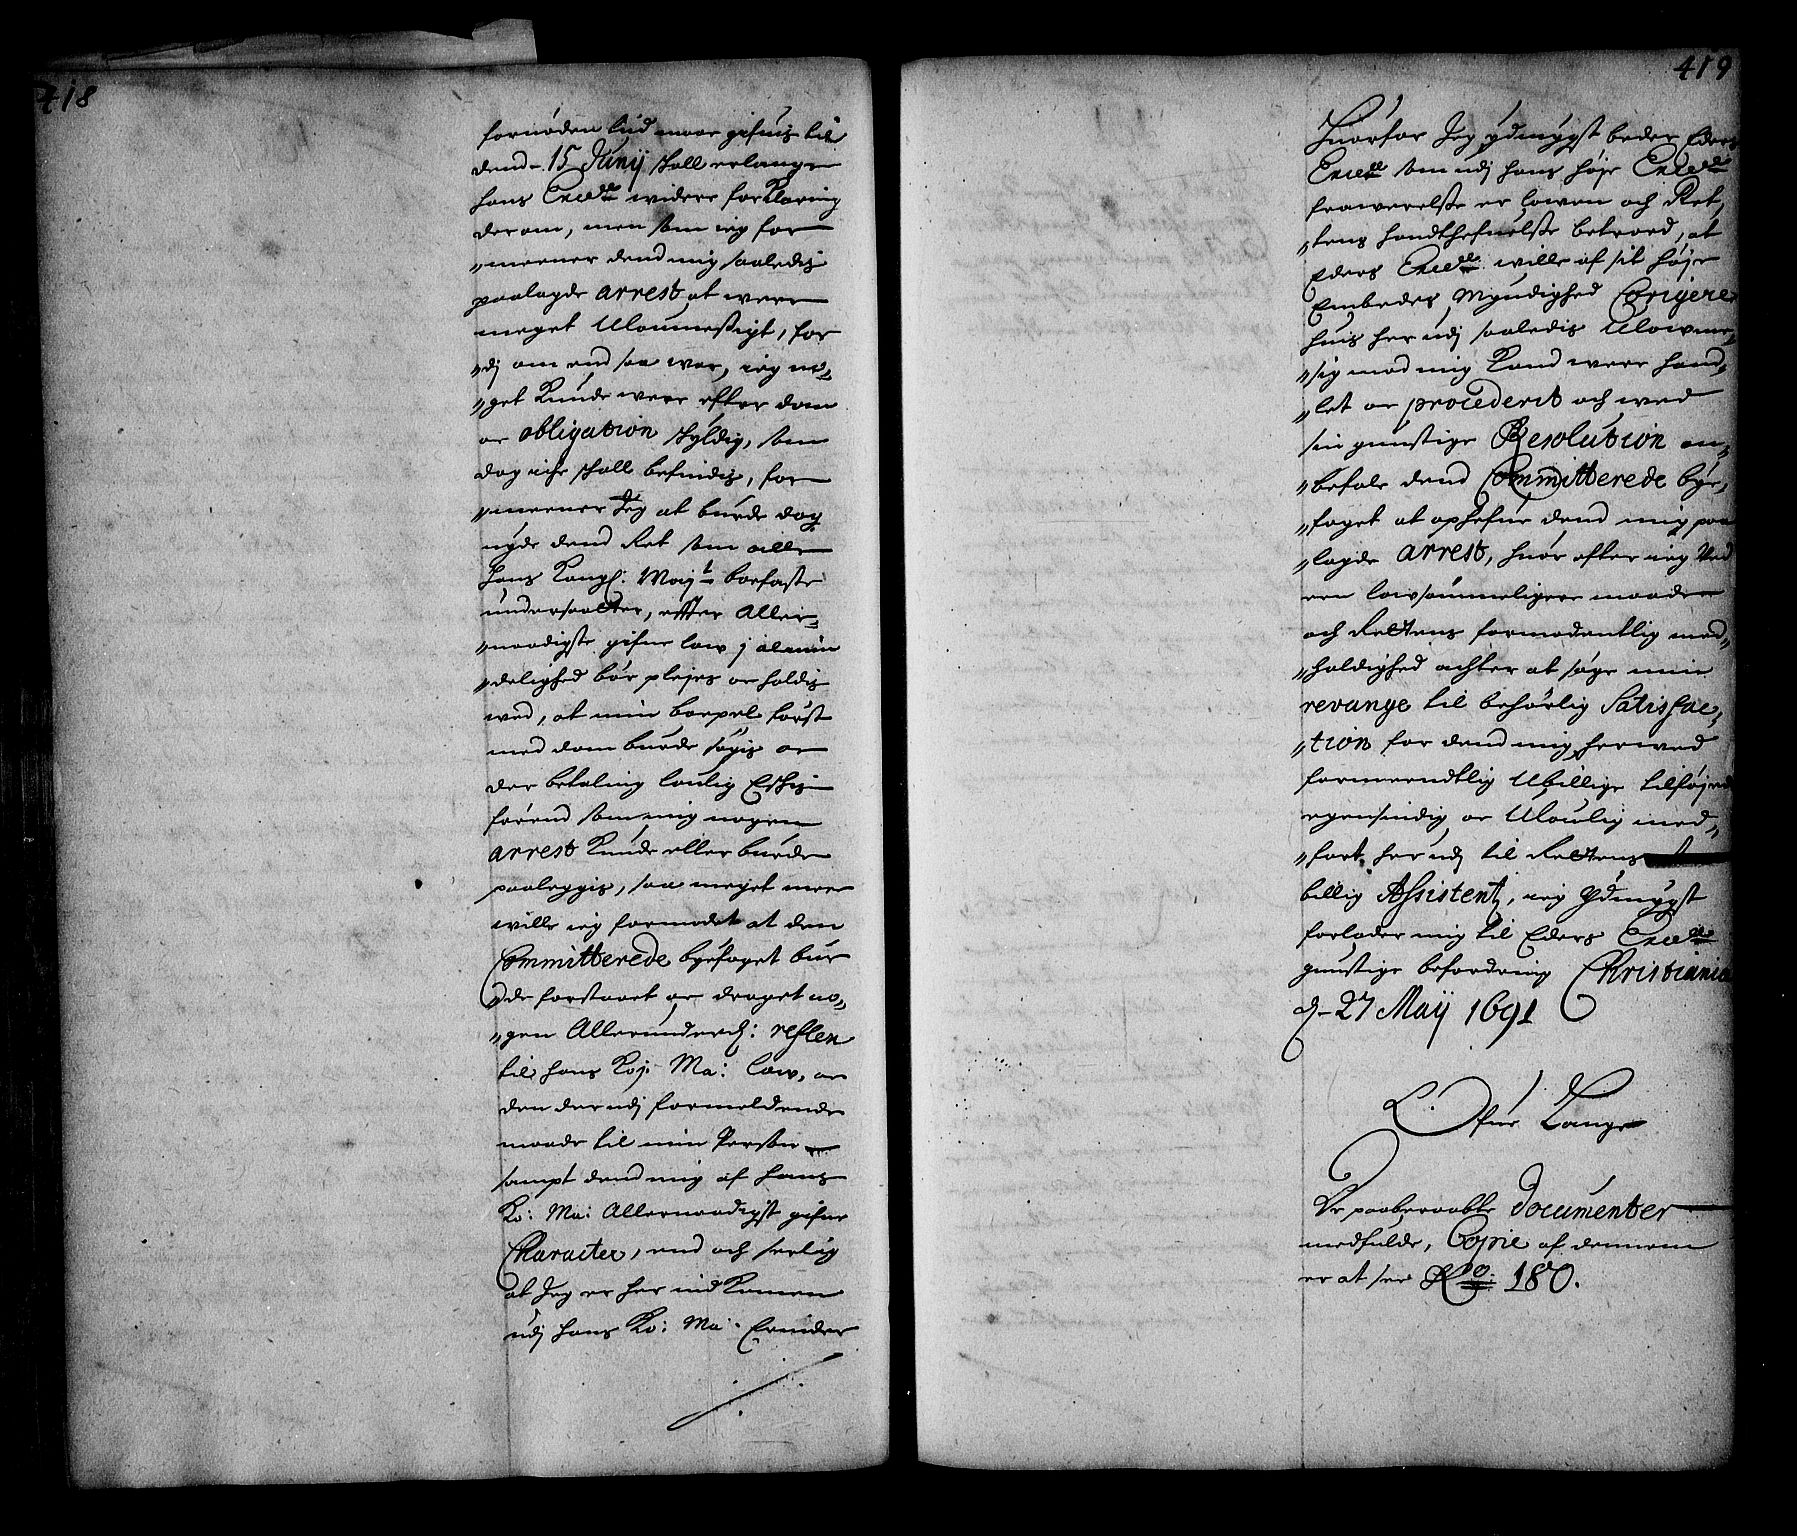 418
fornøden tid maae gifuis til
dend 15 Junij skall erlange
hans Excell: widere forklaring
derom, men som ieg for
„meener dend mig saaledis
paalagde arrest at were
meget Uloumessigt, for
„dj om end saa war, ieg no„
„get kunde were efter dom
oc obligation skyldig, som
dog icke skall befindis, for
„meener Jeg at burde dog
nyde dend Ret som alle
hans Kongl: Mayts
undersaatter, effter Aller„
„naadigste gifne low j almin
„delighed bør plejes oc holdis
wed, at min først
med dom burde søgis oc
der betaling loulig Eskis
førend som mig nogen
arrest kunde eller burde
paaleggis, saa meget meer
wille ieg formodet at den
Committerede byefoget bur
„de forstaaet oc draget no„
„gen Allerunderd: reflen
til hans Kog: Ma: Low, oc
den derudj formeldende
maade til min Person
sampt dend mig af hans
Ko: Ma: Allernaadigst gifne
Character, end och serlig
at Jeg er her ind komen
udj hans Ko: Ma: Erinder
419
Huorfor Jeg ydmygst beder Eders
Excell som udj hans høje Excell
frawerelsse er lowen och Ret„
„tens handthefuelsse betroed, at
Eders Excell: wille af sit høje
Embedes Myndighed Corigere
huis her udj saaledis Ulowme„
„sig med mig kand were hand„
„let oc procederit och wed
sin gunstige Resolution an„
„befale dend Committerede bye„
„foget at ophefue dend mig paa
„lagde arrest, huor efter ieg wed
een lowsømmeligere maade
och Rettens formodentlig med„
„holdighed achter at søge min
revange til behørlig Satisfac„
„tion for dend mig herwed
formeendtlig Ubillige tilføjede
egensindig oc Uloulig med„
„fart. her udj til Rettens
billig Assistentz, ieg ydmygst
forlader mig til Eders Excell
gunstige befordring Christiania
d– 27 Maij 1691
L. Ofue Lange
De paaberaabte Documenter
medfulde, Copie af dennem
er at see No: 180.